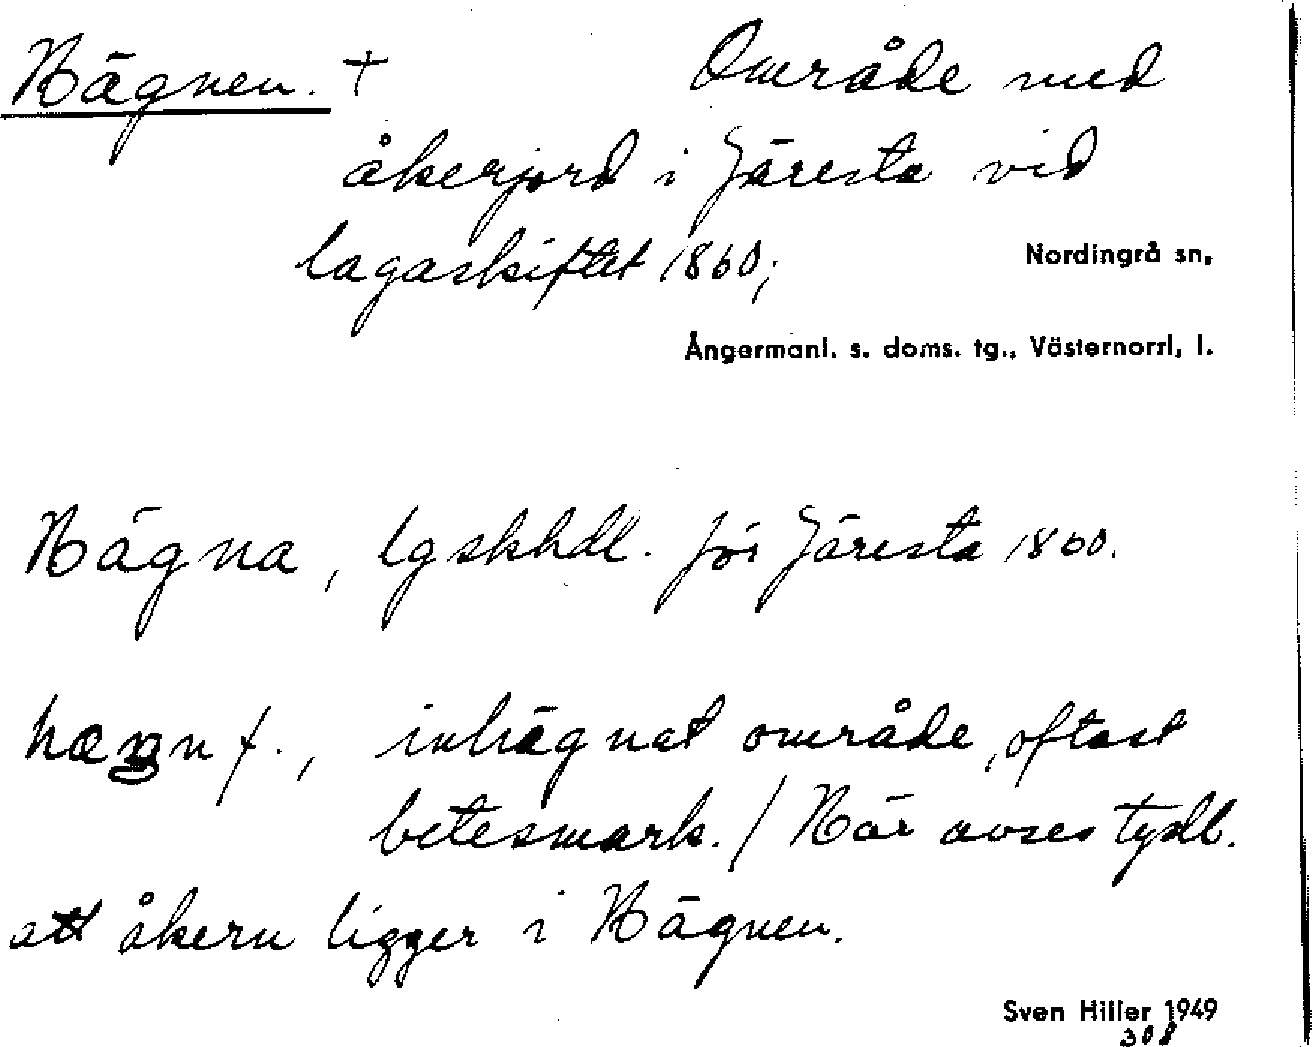 Hägnen. +
Område med
åkerjord i Järesta vid
lagaskiftet 1860;
Nordingrå sn.
Ångermanl. s. doms. tg., Västernorrl. l.
Hägna, lgskhdl. för Järesta 1860.
hægn f., inhägnat område, oftast
betesmark. / Här avses tydl.
att åkern ligger i Hägnen.
Sven Hiller 1949
308